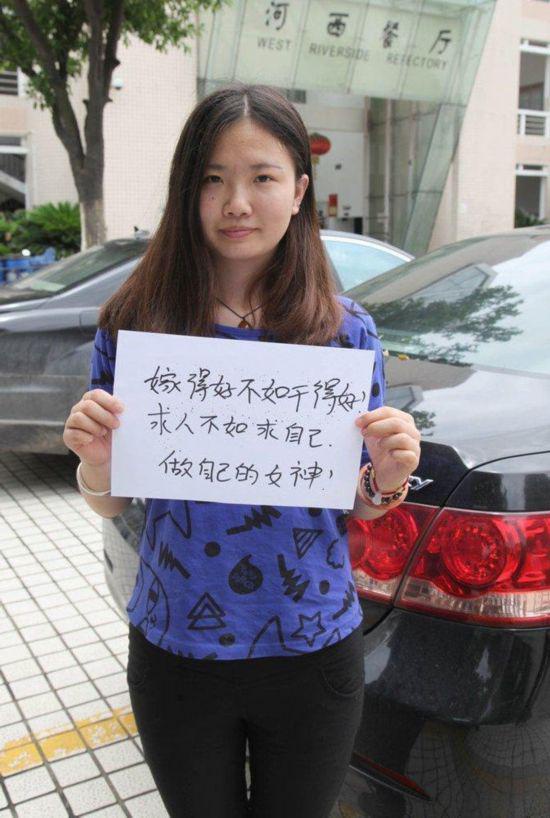 河西餐厅
WEST RIVERSIDE REFECTORY
嫁得好不如干得好!
求人不如求自己.
做自己的女神!